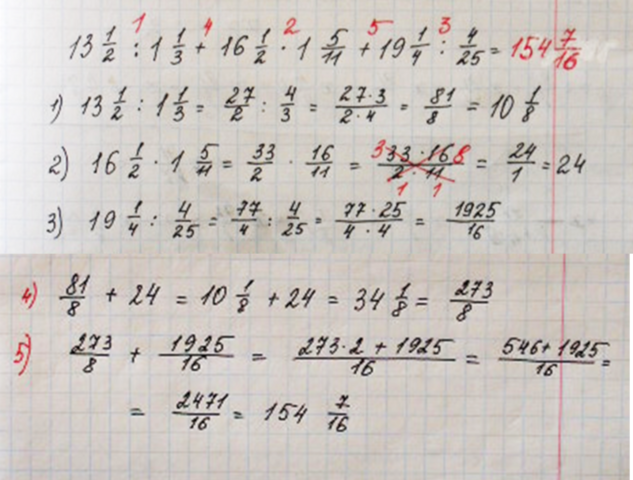 13 1/2 : 1 1/3 + 16 1/2 · 1 5/11 + 19 1/4 : 4/25 = 154 7/16
1 4 2 5 3
1) 13 1/2 : 1 1/3 = 27/2 : 4/3 = 27·3/2·4 = 81/8 = 10 1/8
2) 16 1/2 · 1 5/11 = 33/2 · 16/11 = 3 33·16 8/2·11 1 1 = 24/1 = 24
3) 19 1/4 : 4/25 = 77/4 : 4/25 = 77·25/4·4 = 1925/16
4) 81/8 + 24 = 10 1/8 + 24 = 34 1/8 = 273/8
5) 273/8 + 1925/16 = 273·2 + 1925/16 = 546 + 1925/16 =
= 2471/16 = 154 7/16